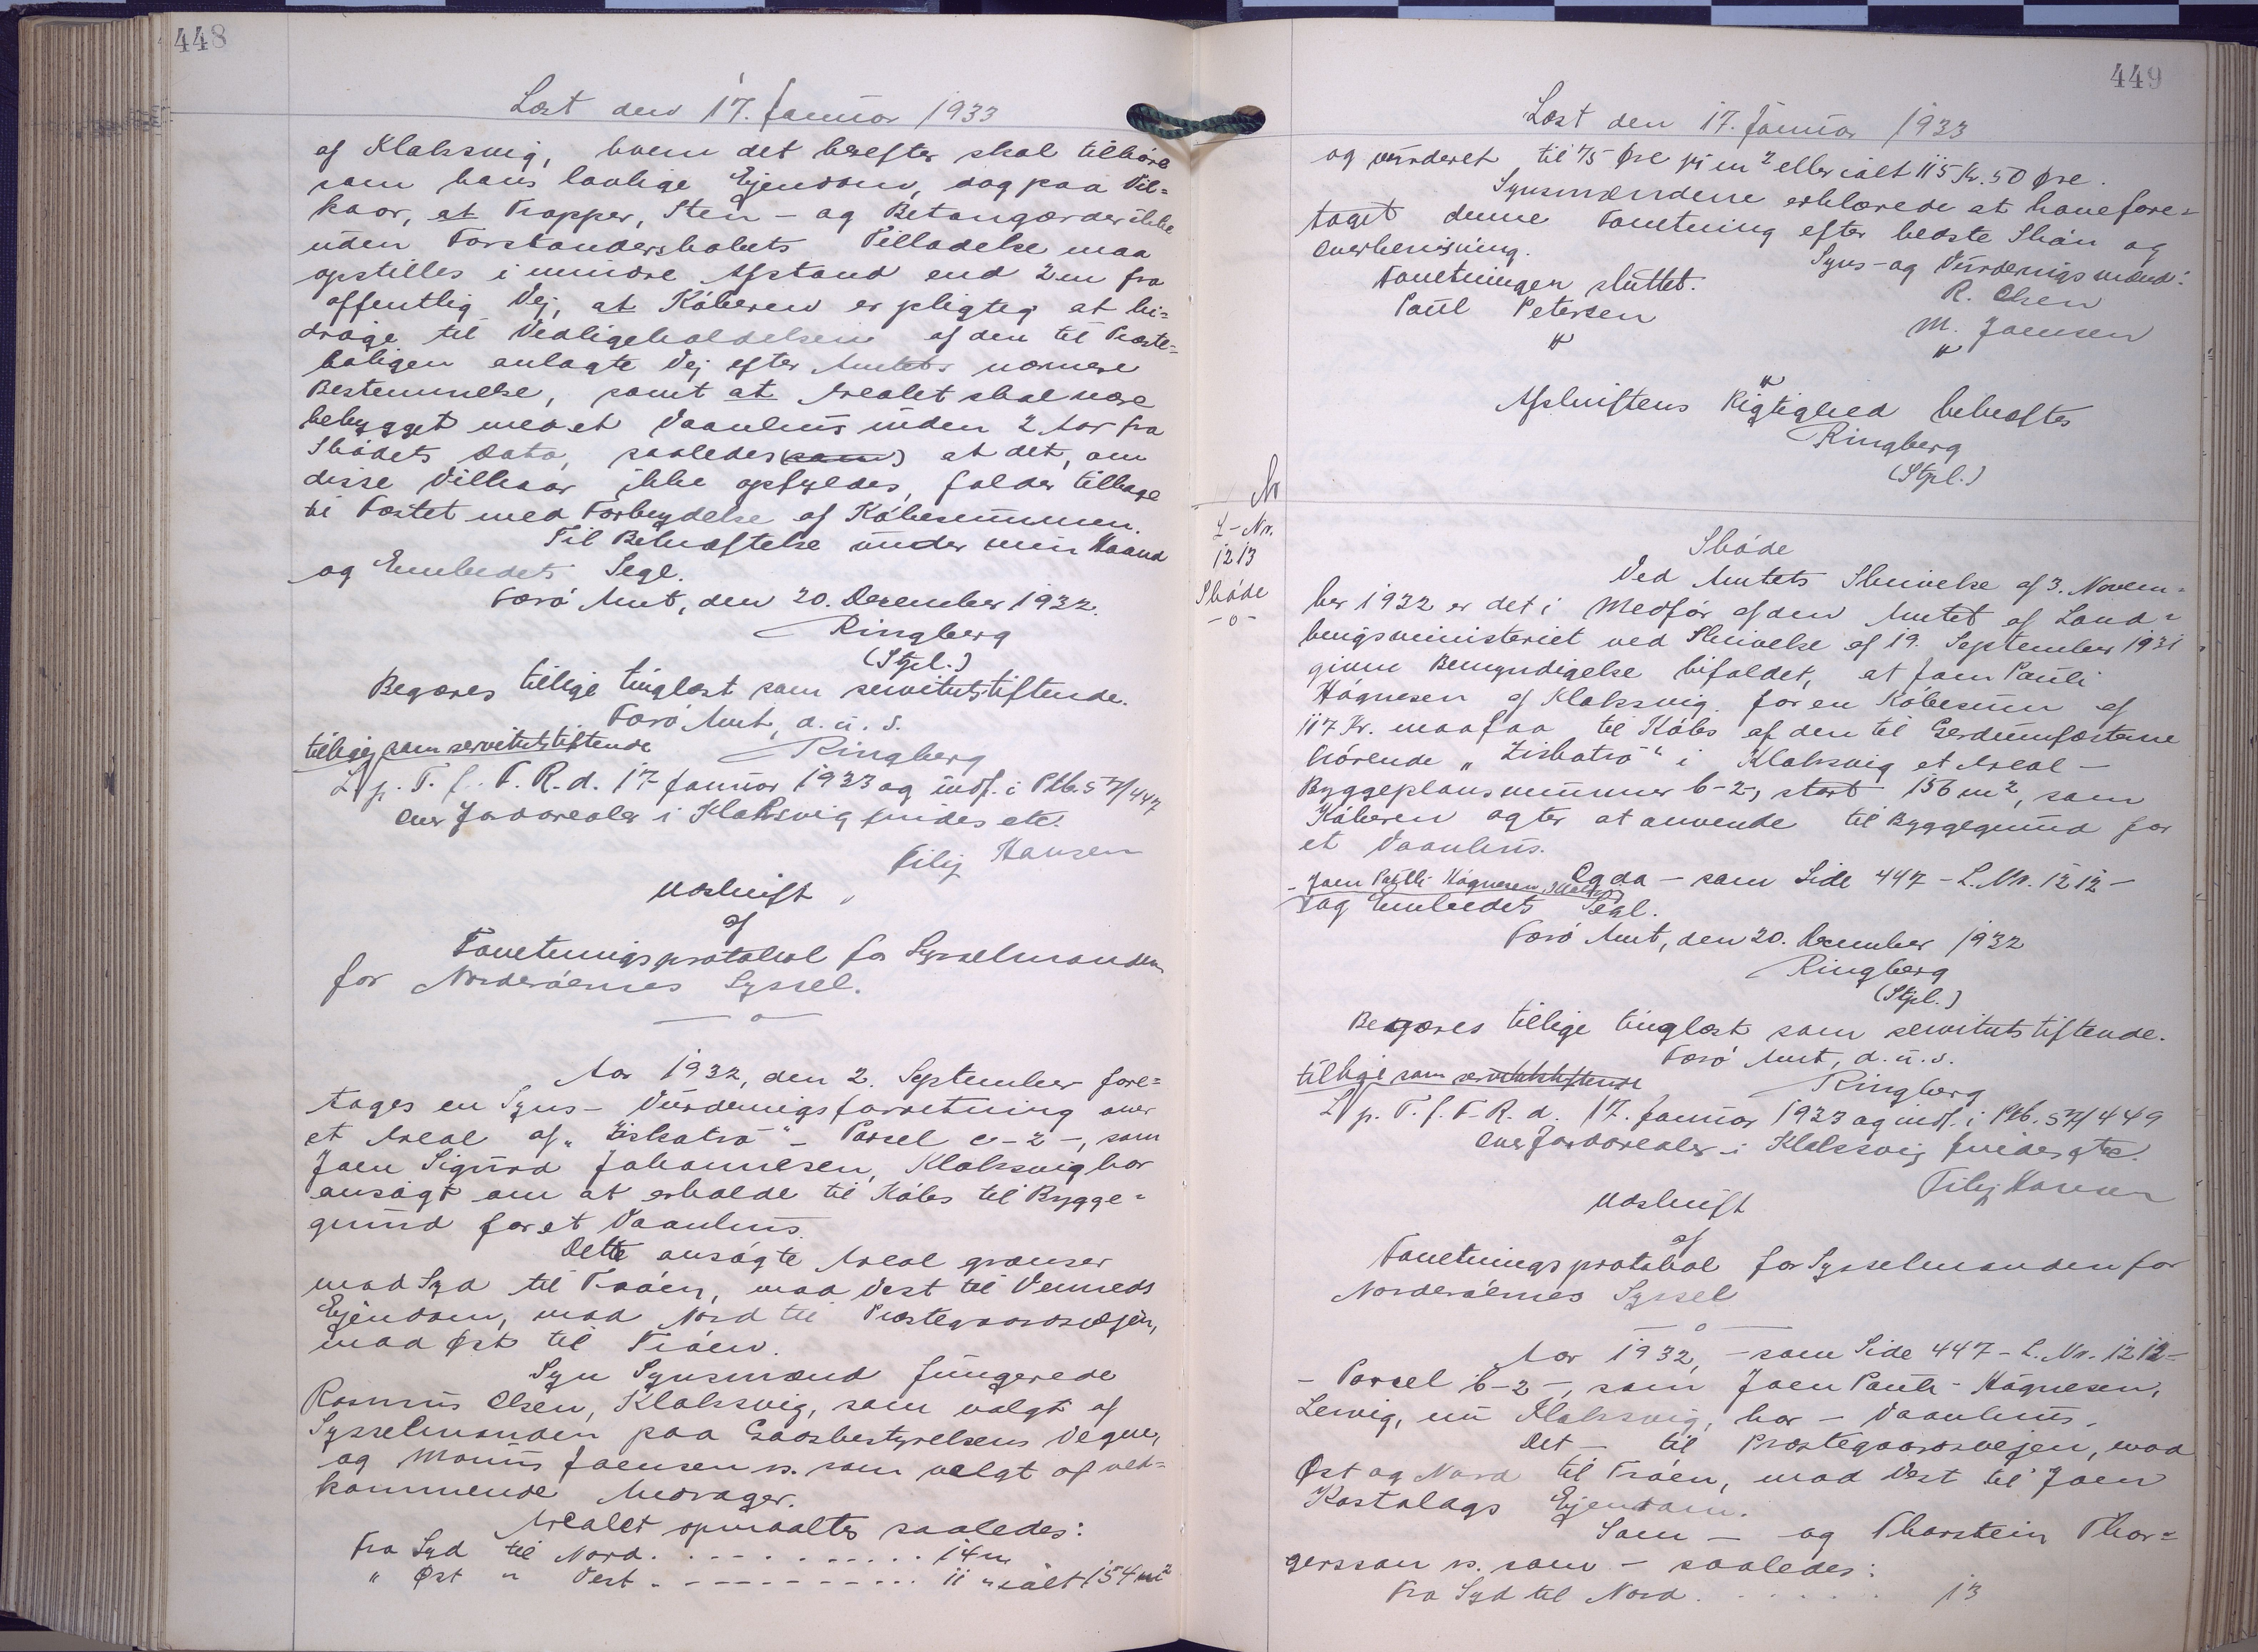 448
Læst den 17. Januar 1933
af Klaksvig, hvem det herefter skal tilhøre
som hans lovlige Ejendom, dog paa Vil=
kaar, at Trapper, Sten- og Betongærder ikke
uden Forstanderskabets Tilladelse maa
opstilles i mindre Afstand end 2 m fra
offentlig Vej, at Køberen er pligtig at bi=
drage til Vedligeholdelsen af den til Præste=
boligen anlagte Vej efter Amtets nærmere
Bestemmelse, samt at Arealet skal være
bebygget med et Vaanhus inden 2 Aar fra
Skødets Dato, saaledes (som) at det, om
disse Vilkaar ikke opfyldes, falder tilbage
til Fæstet med Forbrydelse af Købesummen.
Til Bekræftelse under min Haand
og Embedets Segl.
Færø Amt, den 20. December 1932.
Ringberg
(Stpl.)
Begæres tillige tinglæst som servitutstiftende.
Færø Amt, d. u. s.
tillige som servitutstiftende
Ringberg
L p. T. f. F. R. d. 17 Januar 1933 og indf. i Ptb. 57/447
Over Jordarealer i Klaksvig findes etc.
Filip Hansen
Udskrift
af
Forretningsprotokol for Sysselmanden
for Norderøernes Syssel.
—o—
Aar 1932, den 2. September fore=
tages en Syns- Vurderingsforretning over
et Areal af „Ziskatrø" - Parsel c-2-, som
Joen Sigurd Johannesen, Klaksvig har
ansøgt om at erholde til Købs til Bygge=
grund for et Vaanhus.
Dette ansøgte Areal grænser
mod Syd til Trøen, mod Vest til Venneds
Ejendom, mod Nord til Præstegaardsvejen,
mod Øst til Trøen.
Syn Synsmænd fungerede
Rasmus Olsen, Klaksvig, som valgt af
Sysselmanden paa Godsbestyrelsens Vegne,
og Monus Joensen s. som valgt af ved=
kommende Andrager.
Arealet opmaaltes saaledes:
Fra Syd til Nord . . . . . . . . . . . 14 m
" Øst " Vest . . . . . . . . . . . 11 " ialt 154 m²
449
Læst den 17. Januar 1933
og vurderet til 75 Øre pr m² eller ialt 115 Kr. 50 Øre.
Synsmændene erklærede at have fore=
taget denne Forretning efter bedste Skøn og
Overbevisning.
Syns- og Vurderingsmænd:
Forretningen sluttet.
R. Olsen
Poul Petersen
M. Joensen
Afskriftens Rigtighed bekræftes
Ringberg
(Stpl.)
Nr
L-Nr.
1213
Skøde
-o-
Skøde
Ved Amtets Skrivelse af 3. Novem=
ber 1932 er det i Medfør af den Amtet af Land=
brugsministeriet ved Skrivelse af 19. September 1931
givne Bemyndigelse bifaldet, at Joen Pauli
Høgnesen af Klaksvig for en Købesum af
117 Kr. maa faa til Købs af den til Gerdumfæsterne
hørende „Ziskatrø" i Klaksvig et Areal -
Byggeplansnummer b-2-, stort 156 m², som
Køberen agter at anvende til Byggegrund for
et Vaanhus.
Og da - som Side 447 - L. Nr. 1212 -
- Joen Pauli Høgnesen,
og Embedets Segl.
Færø Amt, den 20. December 1932
Ringberg
(Stpl.)
Begæres tillige tinglæst som servitutstiftende.
Færø Amt, d. u. s.
tillige som servitutstiftende
Ringberg
L p. T. f. F. R. d. 17. Januar 1933 og indf. i Ptb. 57/449
Over Jordarealer i Klaksvig findes etc.
Filip Hansen
Udskrift
af
Forretningsprotokol for Sysselmanden for
Norderøernes Syssel
—o—
Aar 1932, - som Side 447 - L. Nr. 1212 -
- Parsel b-2-, som Joen Pauli Høgnesen,
Lervig, nu Klaksvig, har - Vaanhus.
Det - til Præstegaardsvejen, mod
Øst og Nord til Trøen, mod Vest til Joen
Kastalags Ejendom.
Som - og Thorstein Thor=
gersson s. som - saaledes:
Fra Syd til Nord . . . . . . 13